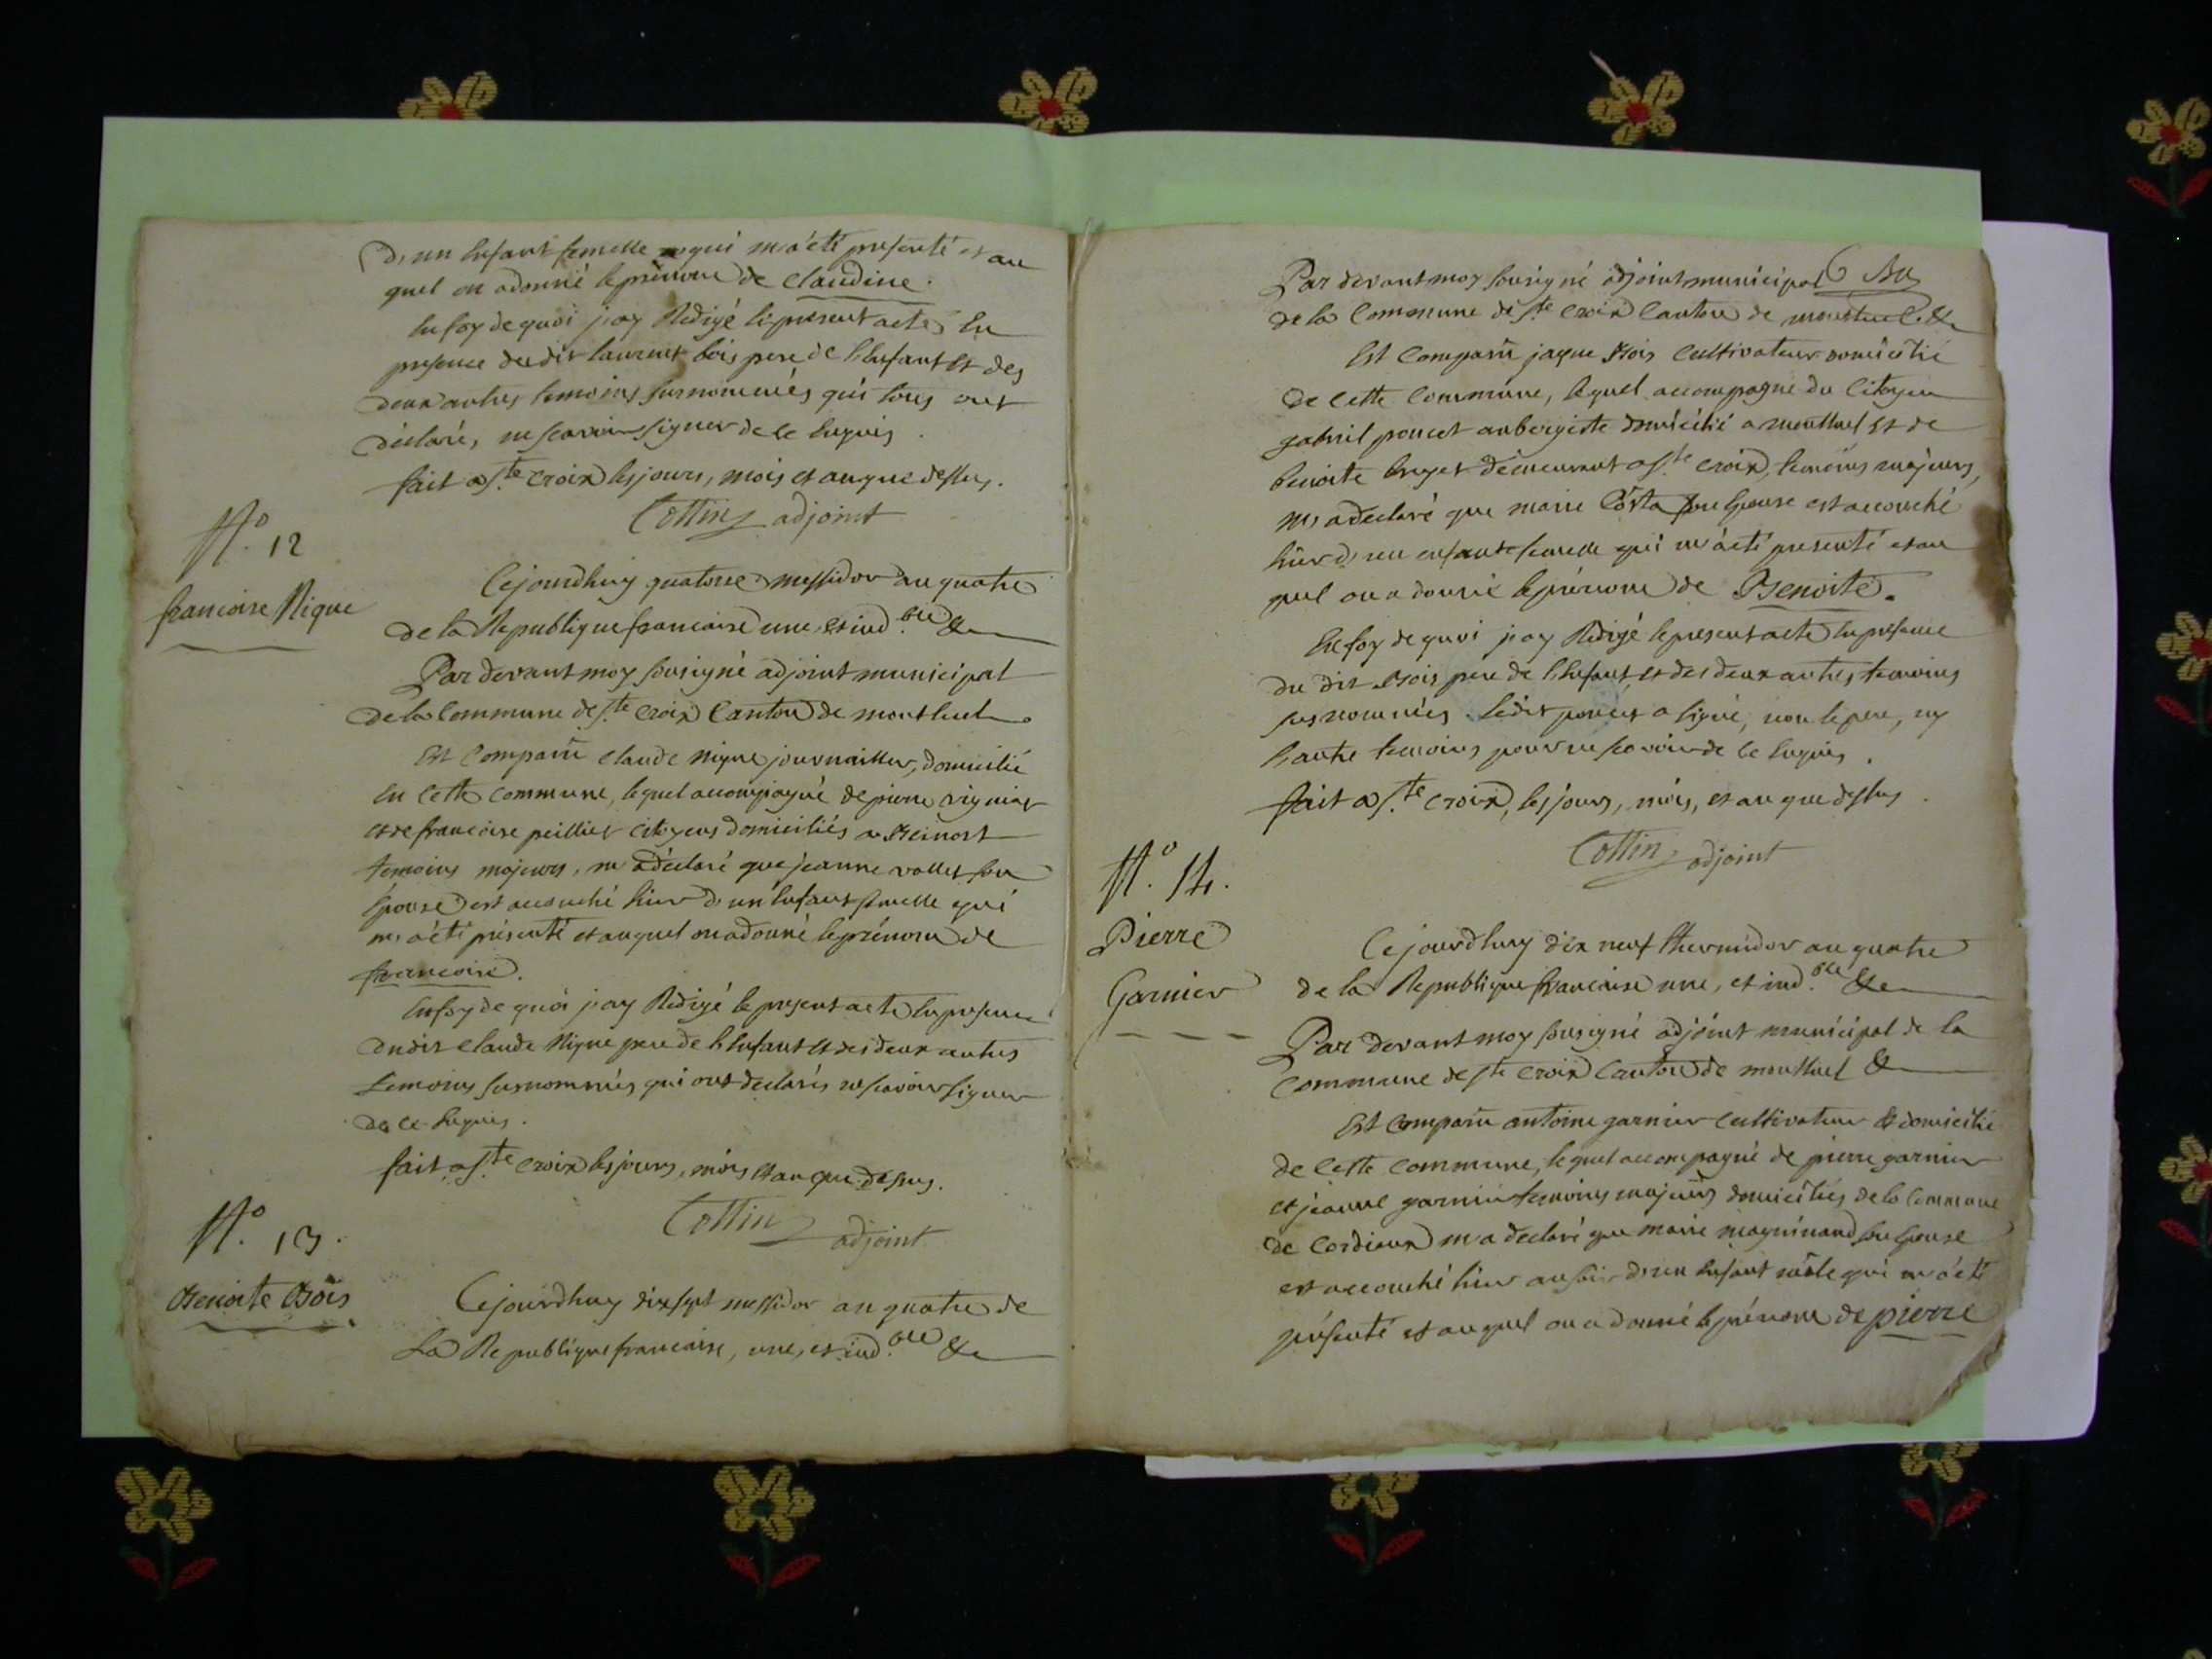 d'un Enfant femelle qui m'a été presenté et au
quel on a donné le prénom de Claudine.
En foy de quoi j'ay Redigé le present acte En
presence du dit laurent bois pere de l'Enfant et des
deux autres temoins surnommés qui tous ont
déclaré, ne scavoir signer de ce Enquis.
fait a Ste croix les jours, mois et an que dessus.
Cottin adjoint
N.o 12
francoise Nique
Cejourdhuy quatorze messidor an quatre
de la Republique francaise une et ind.ble &
Par devant moy sousigné adjoint municipal
de la Commune de Ste croix Canton de montluel
Est Comparu Claude Nique journaillier, domicilié
En cette commune, lequel accompagné de pierre
et de francoise peillier citoyens domiciliés a Beinost
temoins majeurs, m'a déclaré que jeanne vollet son
Epouse est accouché hier d'un Enfant femelle qui
m'a été présenté et auquel on a donné le prénom de
francoise.
En foy de quoi j'ay Redigé le present acte En presence
du dit Claude Nique pere de l'Enfant et des deux autres
temoins susnommés qui ont declarés ne scavoir signer
de ce Enquis.
fait a Ste croix les jours, mois et an que dessus.
Cottin adjoint
N.o 13.
Benoite Bois
Cejourdhuy dix sept messidor an quatre de
La Republique francaise, une, et ind.ble &
6
Par devant moy sousigné adjoint municipal
de la Commune de Ste croix Canton de montluel &
Est Comparu jaque Bois Cultivateur domicilié
de cette Commune, lequel accompagné du Citoyen
gabriel poncet aubergiste domicilié a montluel et de
benoite demeurant a Ste croix, temoins majeurs,
m'a declaré que marie Costa son Epouse est accouché
hier d'un enfant femelle qui m'a été presenté et au
quel on a donné le prénom de Benoite.
En foy de quoi j'ay Redigé le present acte En presence
du dit Bois pere de l'Enfant, et des deux autres temoins
susnommés. Ledit poncet a signé, non le pere, ny
l'autre temoins pour ne scavoir de ce Enquis.
fait a Ste croix, les jours, mois, et an que dessus.
Cottin adjoint
N.o 14.
Pierre
Garnier
Cejourdhuy dix neuf thermidor an quatre
de la Republique francaise une, et ind.ble &
Par devant moy sousigné adjoint municipal de la
Commune de Ste croix Canton de montluel &
Est Comparu antoine garnier Cultivateur & domicilié
de cette Commune, lequel accompagné de pierre garnier
et jeanne garnier temoins majeurs domiciliés de la Commune
de Cordieux m'a declaré que marie magninand son Epouse
est accouché hier au soir d'un Enfant mâle qui m'a été
présenté et auquel on a donné le prénom de pierre